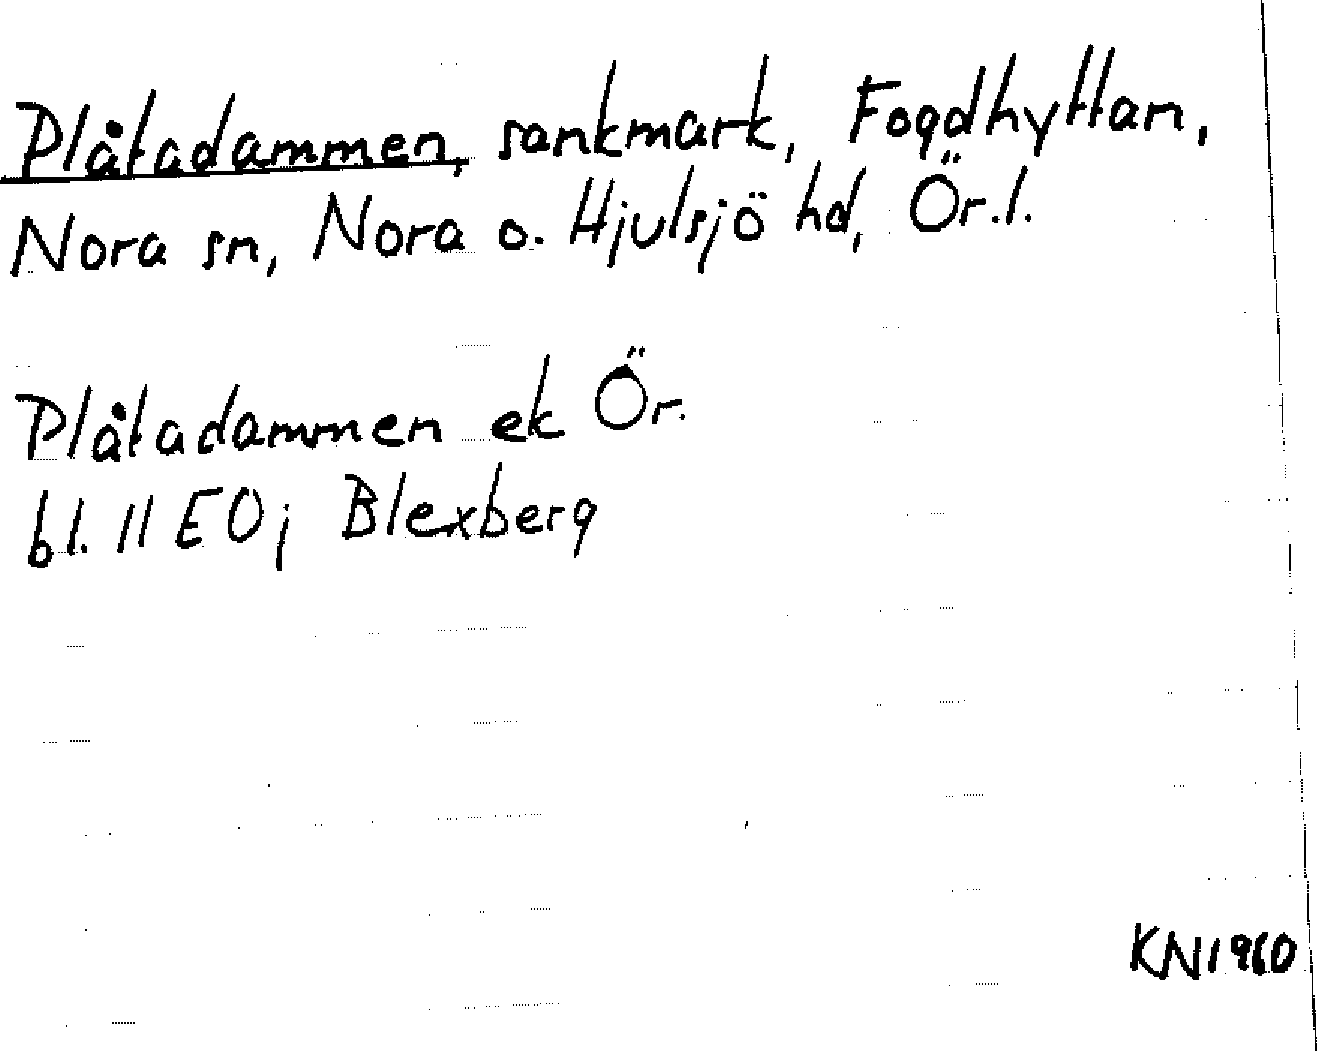 Plåtadammen, sankmark, Fogdhyttan,
Nora sn, Nora o. Hjulsjö hd, Ör.l.
Plåtadammen ek Ör.
bl. 11 E0j Blexberg
KN1960